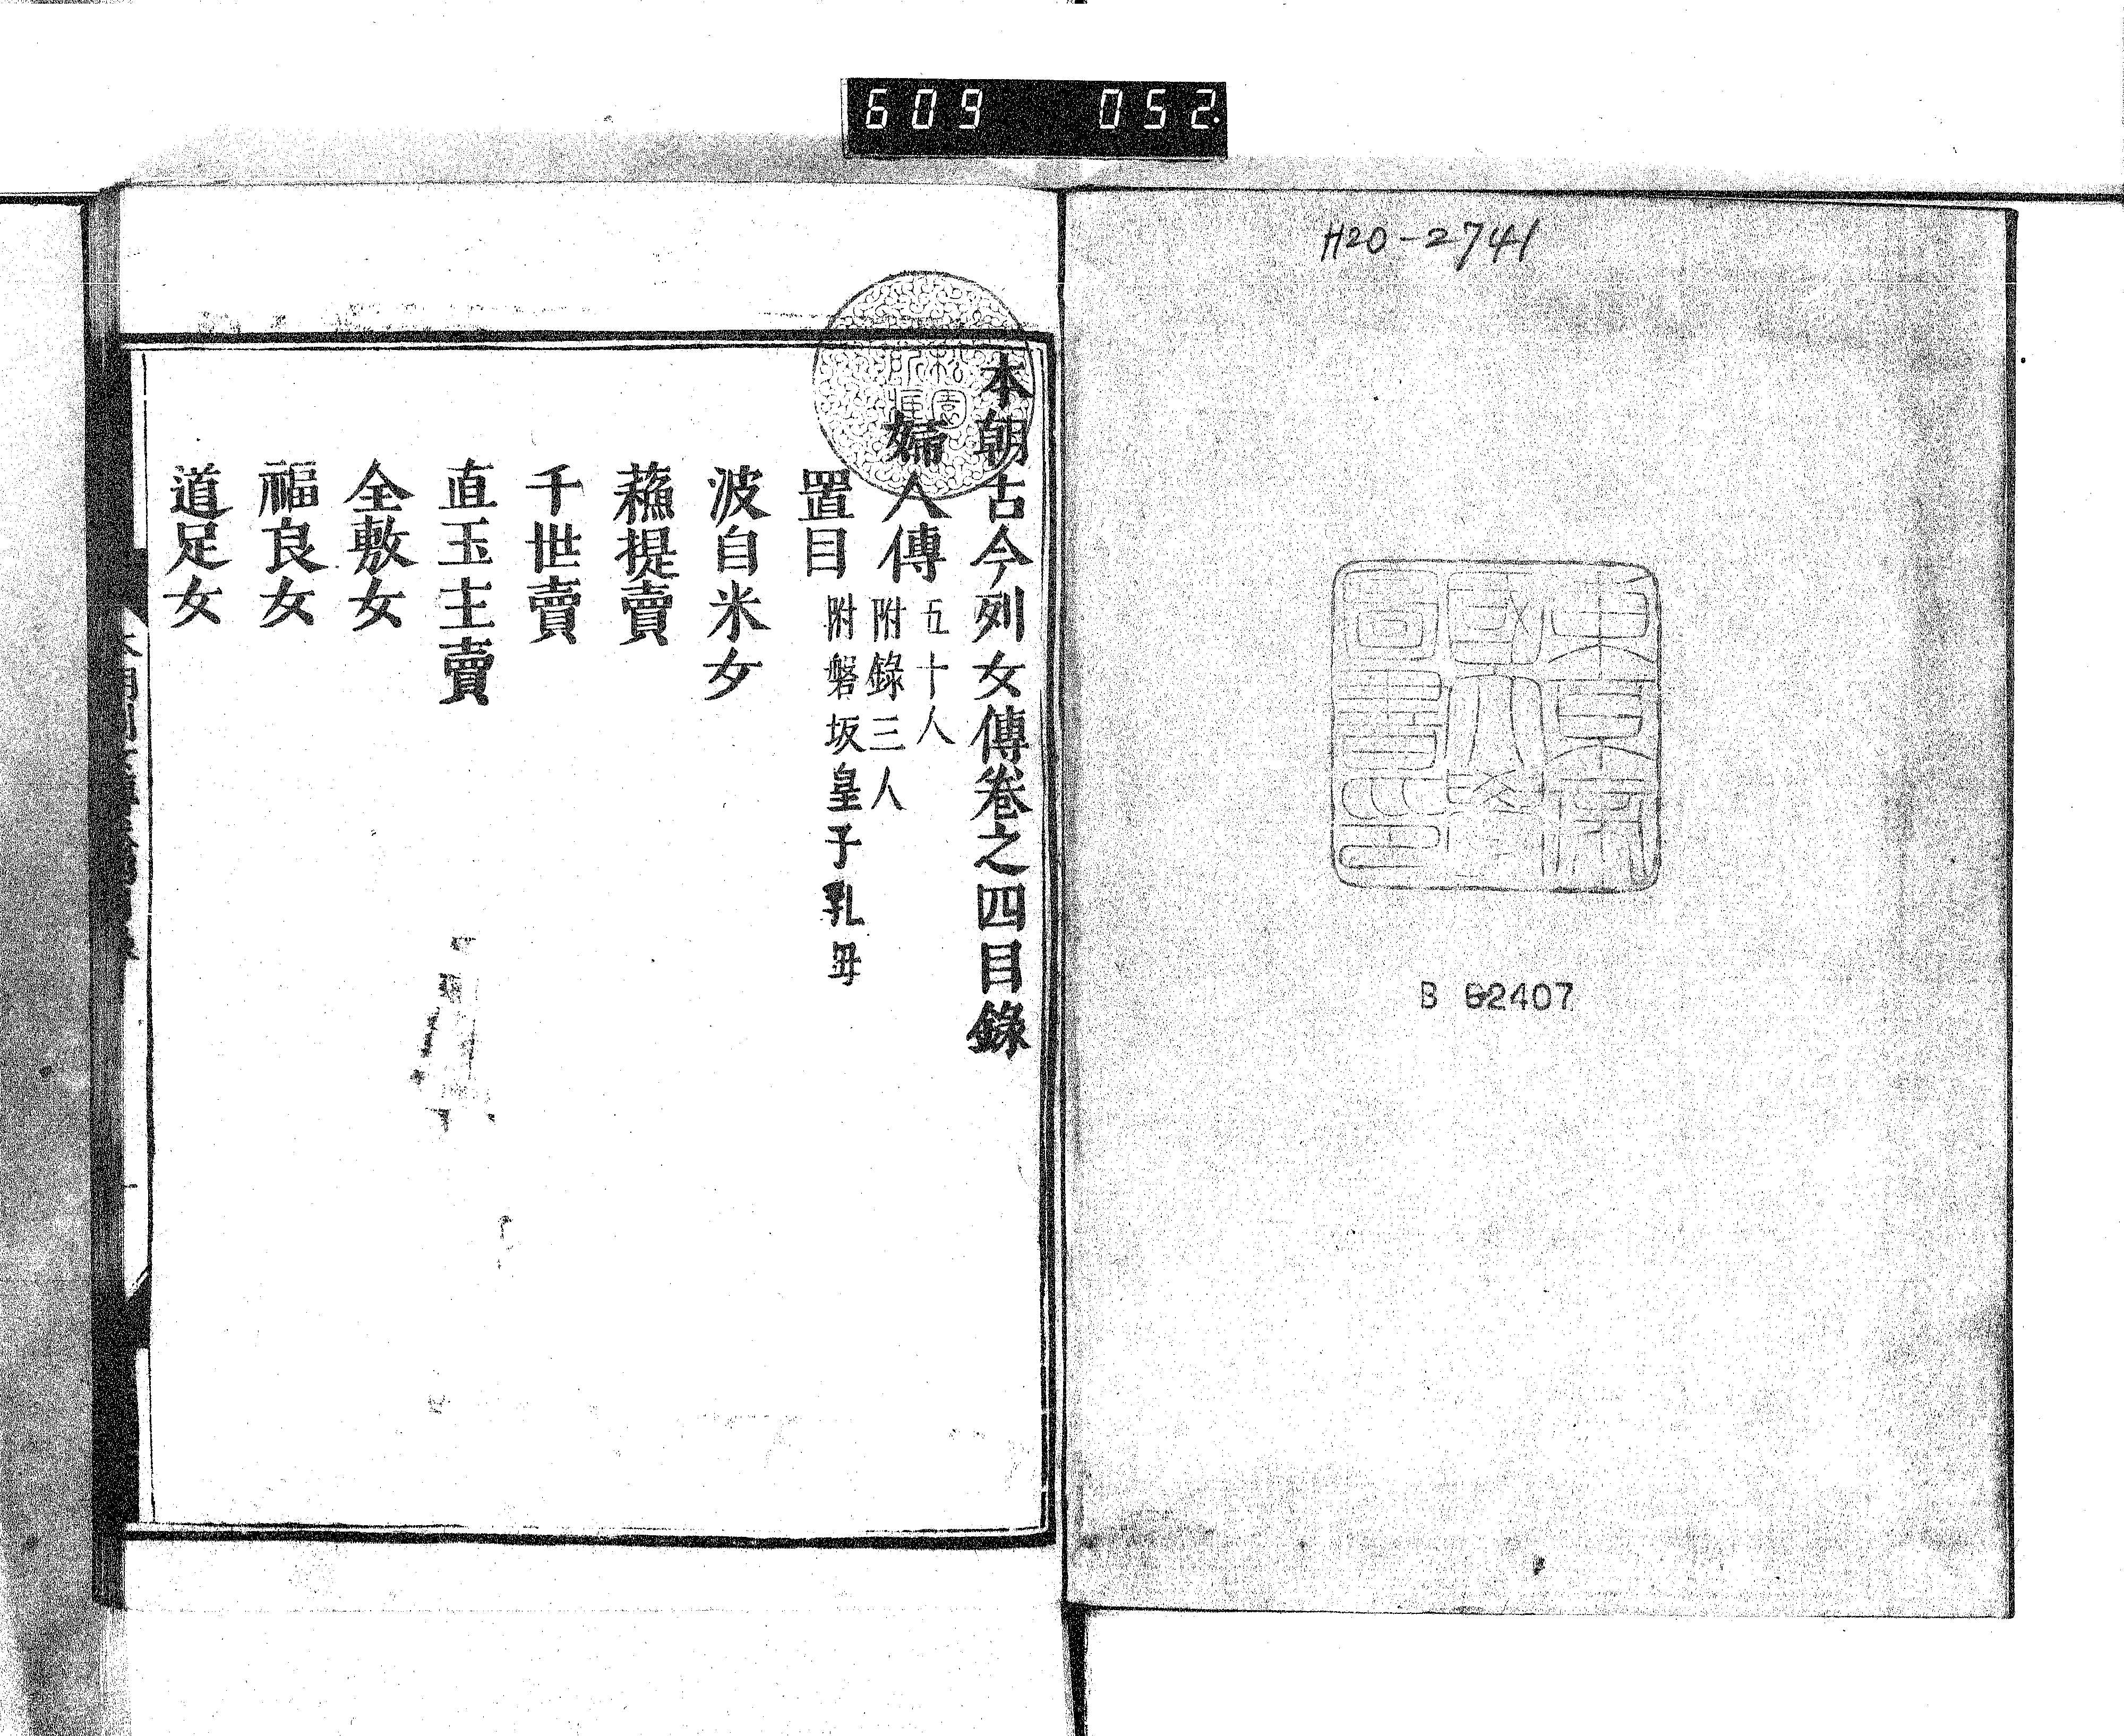 609 052
H20-2741
東京帝國大學圖書印
B 62407
本朝古今列女傳卷之四目錄
婦人傳 五十人 附錄三人
置目 附磐坂皇子乳母
波自米女
蘓提賣
千世賣
直玉主賣
全敷女
福良女
道足女